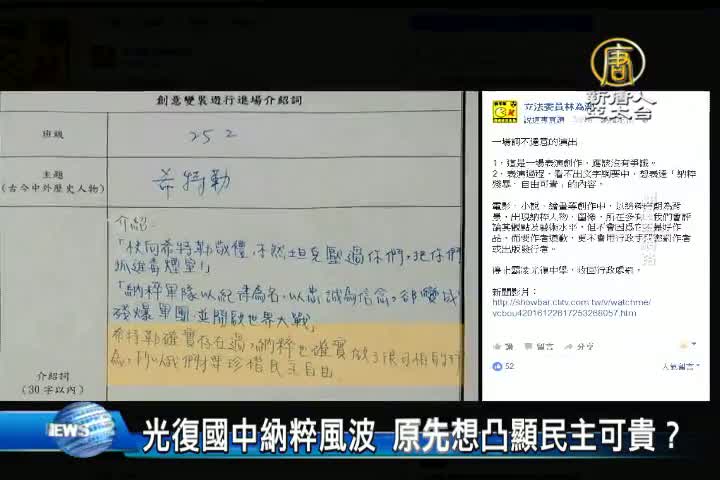 唐
新唐人
亞太台
創意變裝遊行進場介紹詞
班級
252
主題
(古今中外歷史人物)
希特勒
介紹:
「快向希特勒敬禮,不然坦克壓過你們,把你們
抓進毒煙室!」
「納粹軍隊以紀律為名,以忠誠為信念,卻變成
並開啟世界大戰」
希特勒確實存在過,納粹也確實做了很
為,所以我們才要珍惜民主自由
介紹詞
(30字以內)
立法委員林為洲
一場詞不達意的演出
1,這是一場表演創作,應該沒有爭議。
2,表演過程,看不出文字綱要中,想表達「納粹
殘暴,自由可貴」的內容。
電影、小說、繪畫等創作中,以納粹
景,出現納粹人物、圖像,所在多有,我們會評
論其觀點及藝術水平,但不會因為它不是好作
品,而要作者道歉,更不會用行政手段懲罰作者
或出版發行者。
停止霸凌光復中學,收回行政處罰。
新聞影片:
http://showbar.cltv.com.tw/v/watchme/
vcbou4201612261725326​8057.htm
讚 留言 分享
52
人氣留言
NEWS
光復國中納粹風波 原先想凸顯民主可貴?